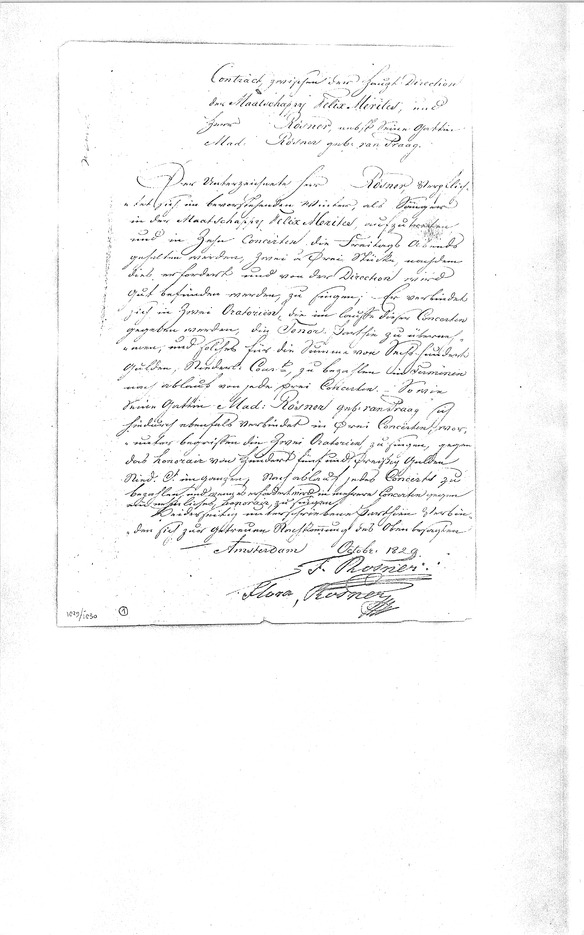 Contract, zwischen der Haupt-Direction
der Maatschappij Felix Meritis, und
Herr Rösner, nebst Seine Gattin
Mad. Rösner geb: van Praag.
Der Unterzeichnete Herr Rösner verpflich-
tet sich im bevorstehenden Winter, als Sänger
in der Maatschappij Felix Meritis aufzutreten
und in Zehn Concerten, die Freitags Abends
gehalten werden, Zwei a Drei Stücke, nachdem
dies erfordert und von der Direction wird
gut befunden werden, zu singen; Er verbindet
sich in Zwei Oratorien, die im laufe dieser Concerten
gegeben werden, die Tenor Parthie zu überneh-
men, und solches für die Summe von Sechshundert
Gulden, Niederl: Cour:t, zu bezahlen in Terminen
nach ablauf von jede Drei Concerten. – So wie
Seine Gattin Mad: Rösner geb: van Praag sich
hiedurch ebenfals verbindet in Drei Concerten, wor-
unter begriffen die Zwei Oratorien zu singen, gegen
das honorair von Hundert fünf und Dreißig Gulden
Nied. C. im ganzen, Nach ablauf jedes Concerts zu
bezahlen, und wenn erfordert wird in mehrere Concerten gegen
ein ähnliches honorar zu singen.
Beiderseitig unterschriebene Parthien verbin-
den sich zur getreuen Nachkommung des Obenbesagten
Amsterdam Octobr: 1829.
F. Rosner.
Flora, Rosner
1029/1030 1